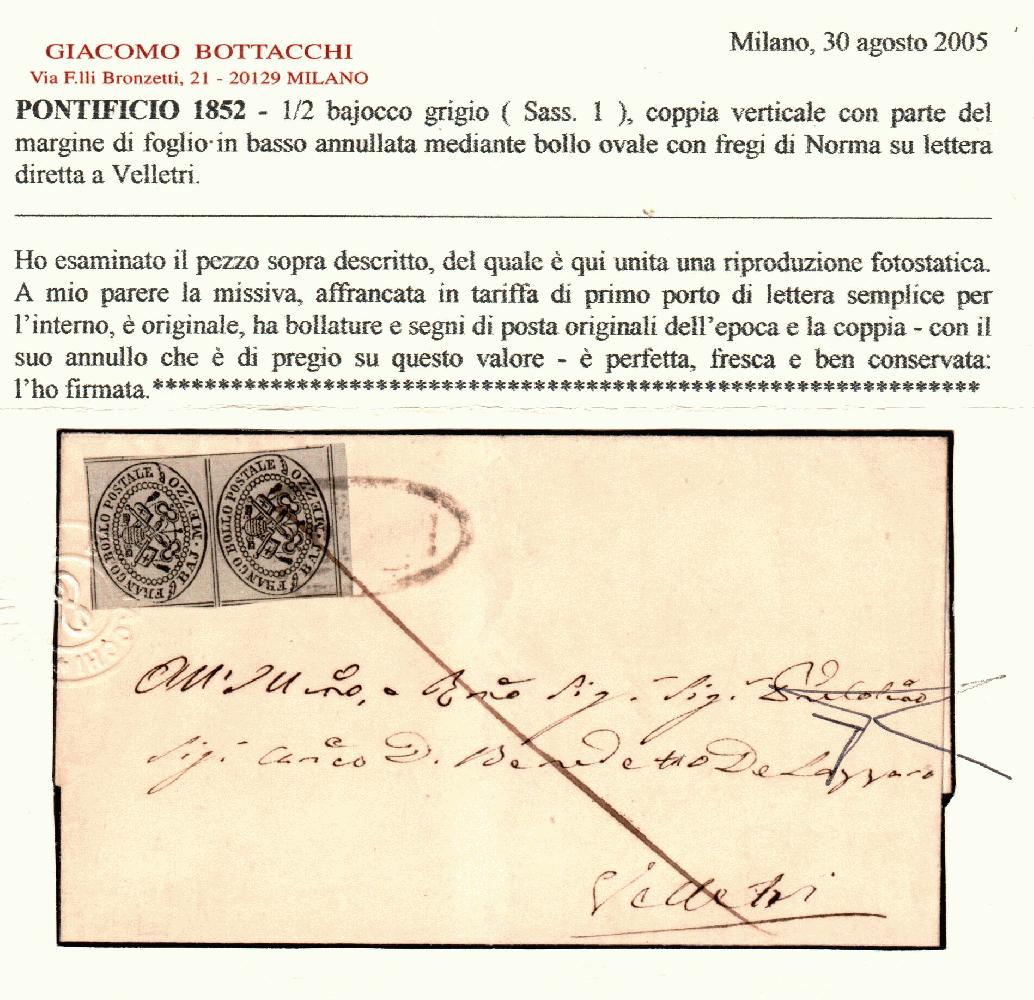 GIACOMO BOTTACCHI
Via F.lli Bronzetti, 21 - 20129 MILANO
Milano, 30 agosto 2005
PONTIFICIO 1852 - 1/2 bajocco grigio ( Sass. 1 ), coppia verticale con parte del
margine di foglio in basso annullata mediante bollo ovale con fregi di Norma su lettera
diretta a Velletri.
Ho esaminato il pezzo sopra descritto, del quale è qui unita una riproduzione fotostatica.
A mio parere la missiva, affrancata in tariffa di primo porto di lettera semplice per
l'interno, è originale, ha bollature e segni di posta originali dell'epoca e la coppia - con il
suo annullo che è di pregio su questo valore - è perfetta, fresca e ben conservata:
l'ho firmata.***************************************************************
FRANCO BOLLO POSTALE MEZZO BAJ.
FRANCO BOLLO POSTALE MEZZO BAJ.
All' Illmo, e Rmo Sig. Sig.
Sig. D. Benedetto De Lazzaro
Velletri